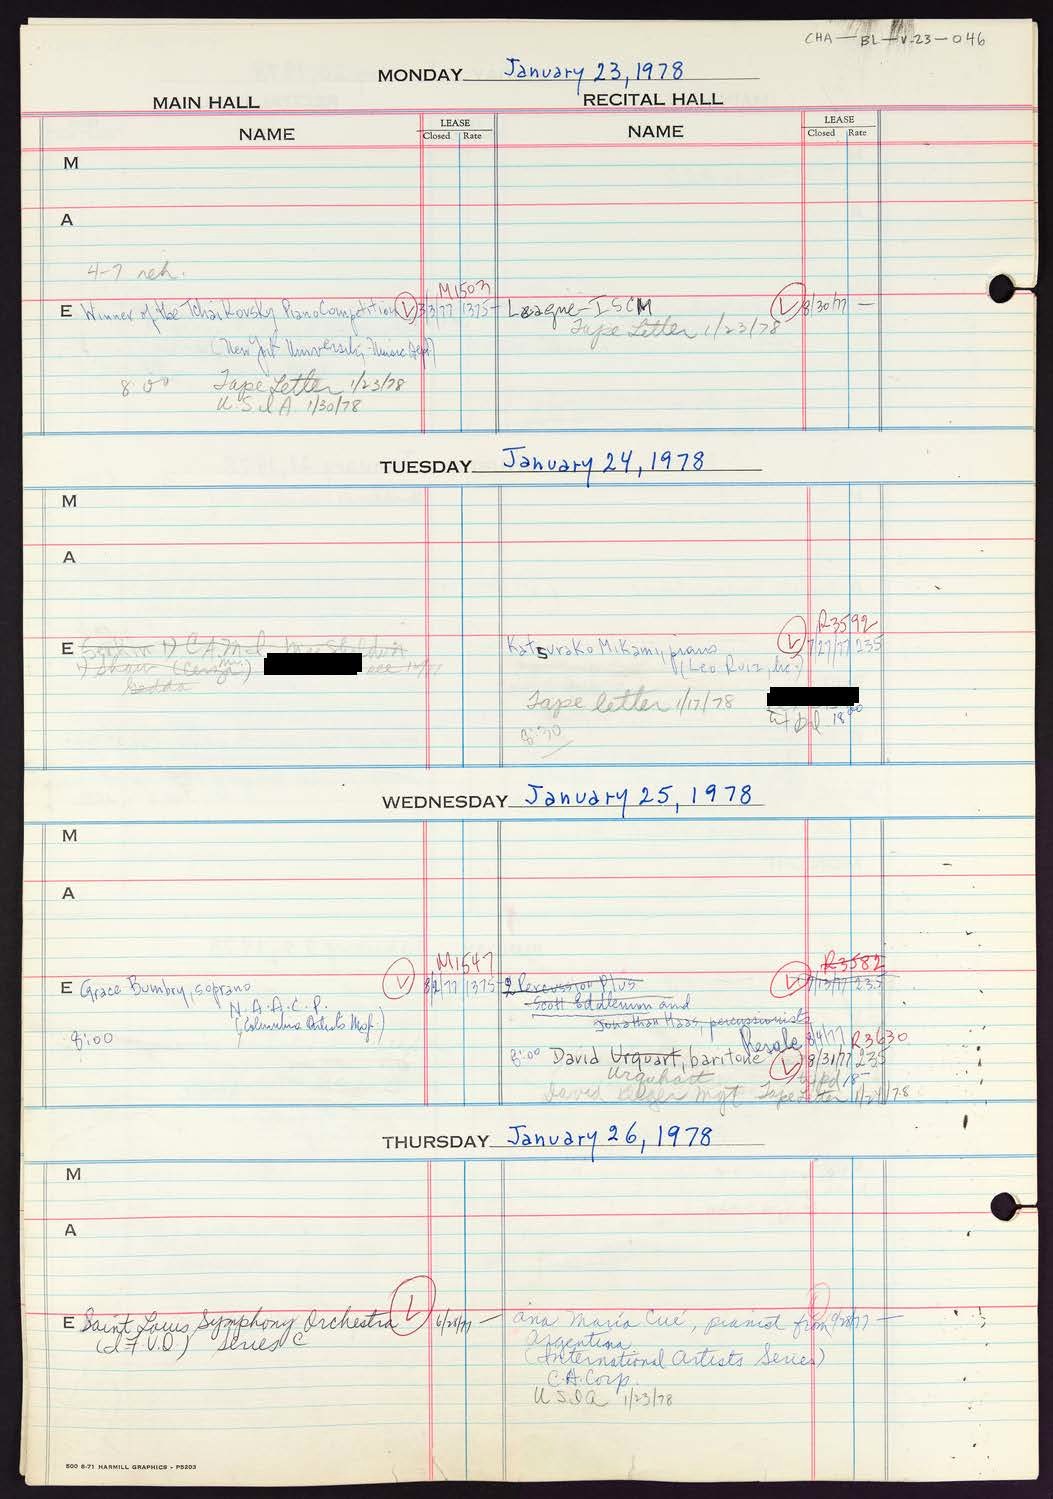 CHA-BL-V.23-046
MONDAY January 23, 1978
MAIN HALL RECITAL HALL
NAME LEASE Closed Rate NAME LEASE Closed Rate
M
A
4-7 reh.
M1503
E Winner of the Tchaikovsky Piano Competition 3/3/77 1375- League-ISCM 8/30/77 —
Tape Letter 1/23/78
(New York University, Music Dept)
8:00 Tape Letter 1/23/78
U.S.I.A. 1/30/78
TUESDAY January 24, 1978
M
A
R3592
E C.A.M.I. Katsurako Mikami, piano 7/27/77 235
(Leo Ruiz, Inc.)
Gedda
Tape letter 1/17/78
pd 18
8:30
WEDNESDAY January 25, 1978
M
A
M1547 R3582
E Grace Bumbry, soprano 8/2/77 1375- Percussion Plus 7/13/77 235
N.A.A.C.P. Scott Eddlemon and
(Columbia Artists Mgt.) Jonathan Haas, percussionists
8:00 Resale 8/4/77 R3630
8:00 David Urquart, baritone 8/31/77 235
Urquhart pd 18-
David Mgt Tape Letter 1/24/78
THURSDAY January 26, 1978
M
A
E Saint Louis Symphony Orchestra 6/28/77 — Ana María Cué, pianist from 9/28/77 —
(I.F.V.O) Series C Argentina
(International Artists Series)
C.H. Corp.
USIA 1/23/78
500 6-71 HARMILL GRAPHICS - P5203